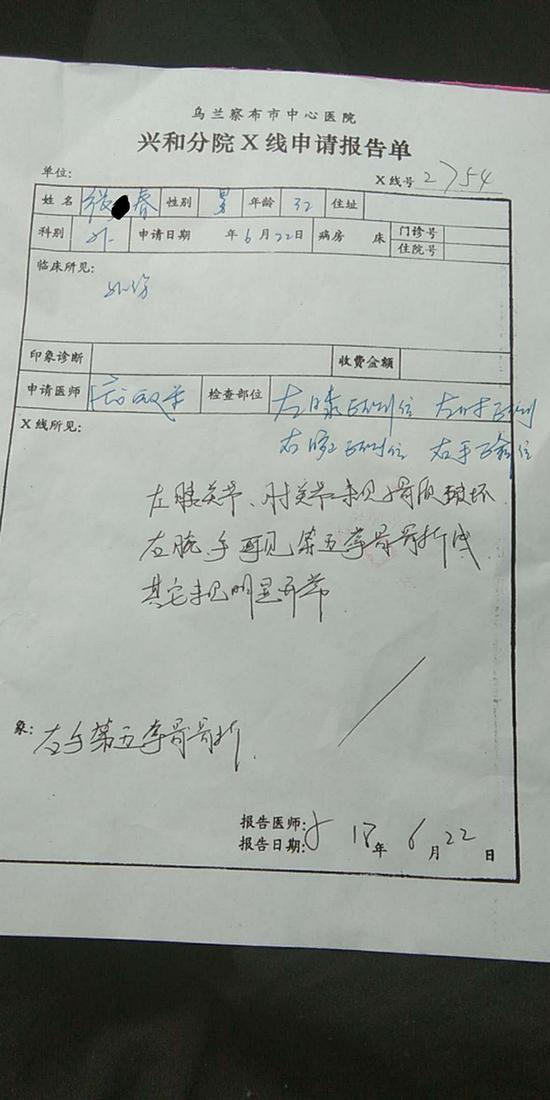 乌兰察布市中心医院
兴和分院X线申请报告单
单位: X线号 2754
姓名 春 性别 男 年龄 32 住址
科别 外 申请日期 年6月22日 病房 床 门诊号
住院号
临床所见:
外伤
印象诊断 收费金额
申请医师 检查部位 左膝正侧位 左肘正侧
右腕正侧位 右手正斜位
X线所见:
左膝关节、肘关节未见骨质破坏
左腕、手可见第五掌骨骨折线
其它未见明显异常
象: 左手第五掌骨骨折.
报告医师:
报告日期: 18年6月22日